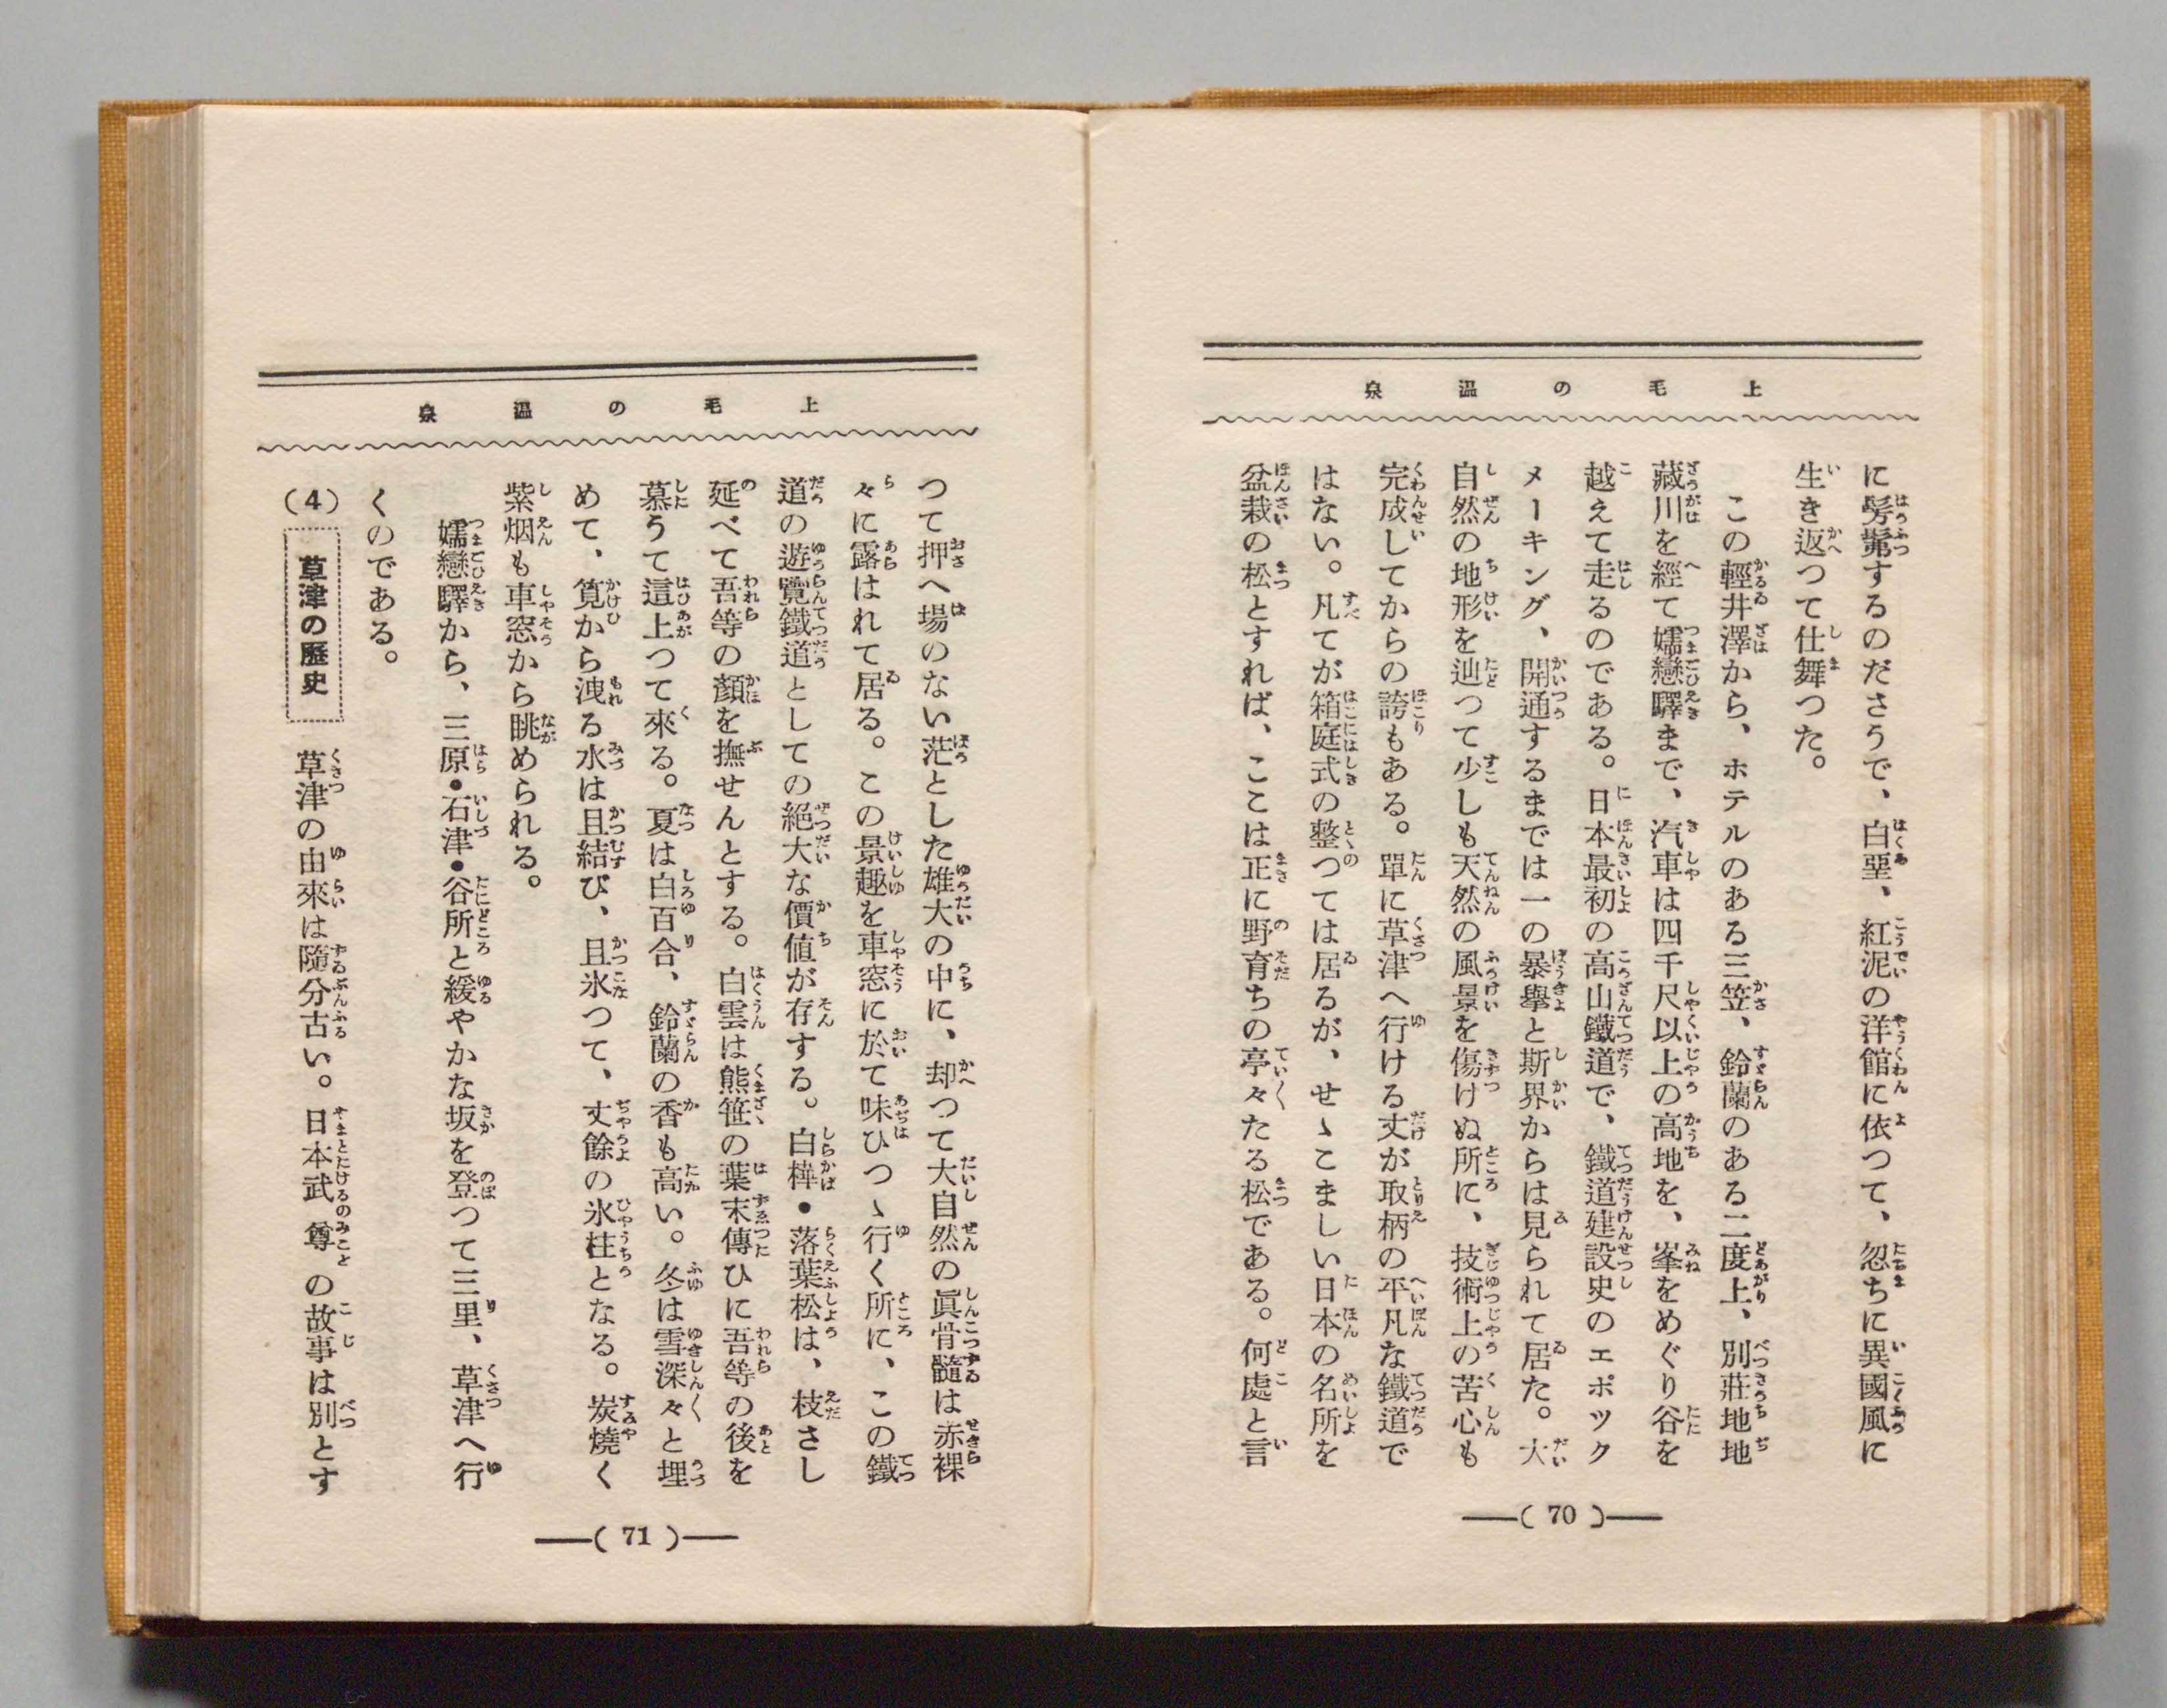 上毛の温泉
に髣髴するのださうで、白堊、紅泥の洋館に依つて、忽ちに異國風に
生き返つて仕舞つた。
この輕井澤から、ホテルのある三笠、鈴蘭のある二度上、別莊地地
藏川を經て嬬戀驛まで、汽車は四千尺以上の高地を、峯をめぐり谷を
越えて走るのである。日本最初の高山鐵道で、鐵道建設史のエポック
メーキング、開通するまでは一の暴擧と斯界からは見られて居た。大
自然の地形を辿つて少しも天然の風景を傷けぬ所に、技術上の苦心も
完成してからの誇もある。單に草津へ行ける丈が取柄の平凡な鐵道で
はない。凡てが箱庭式の整つては居るが、せゝこましい日本の名所を
盆栽の松とすれば、ここは正に野育ちの亭々たる松である。何處と言
(70)
上毛の温泉
つて押へ場のない茫とした雄大の中に、却つて大自然の眞骨髓は赤裸
々に露はれて居る。この景趣を車窓に於て味ひつゝ行く所に、この鐵
道の遊覽鐵道としての絕大な價値が存する。白樺・落葉松は、枝さし
延べて吾等の顏を撫せんとする。白雲は熊笹の葉末傳ひに吾等の後を
慕うて這上つて來る。夏は白百合、鈴蘭の香も高い。冬は雪深々と埋
めて、筧から洩る水は且結び、且氷つて、丈餘の氷柱となる。炭燒く
紫烟も車窓から眺められる。
嬬戀驛から、三原・石津・谷所と緩やかな坂を登つて三里、草津へ行
くのである。
(4) 草津の歷史 草津の由來は隨分古い。日本武尊の故事は別とす
(71)